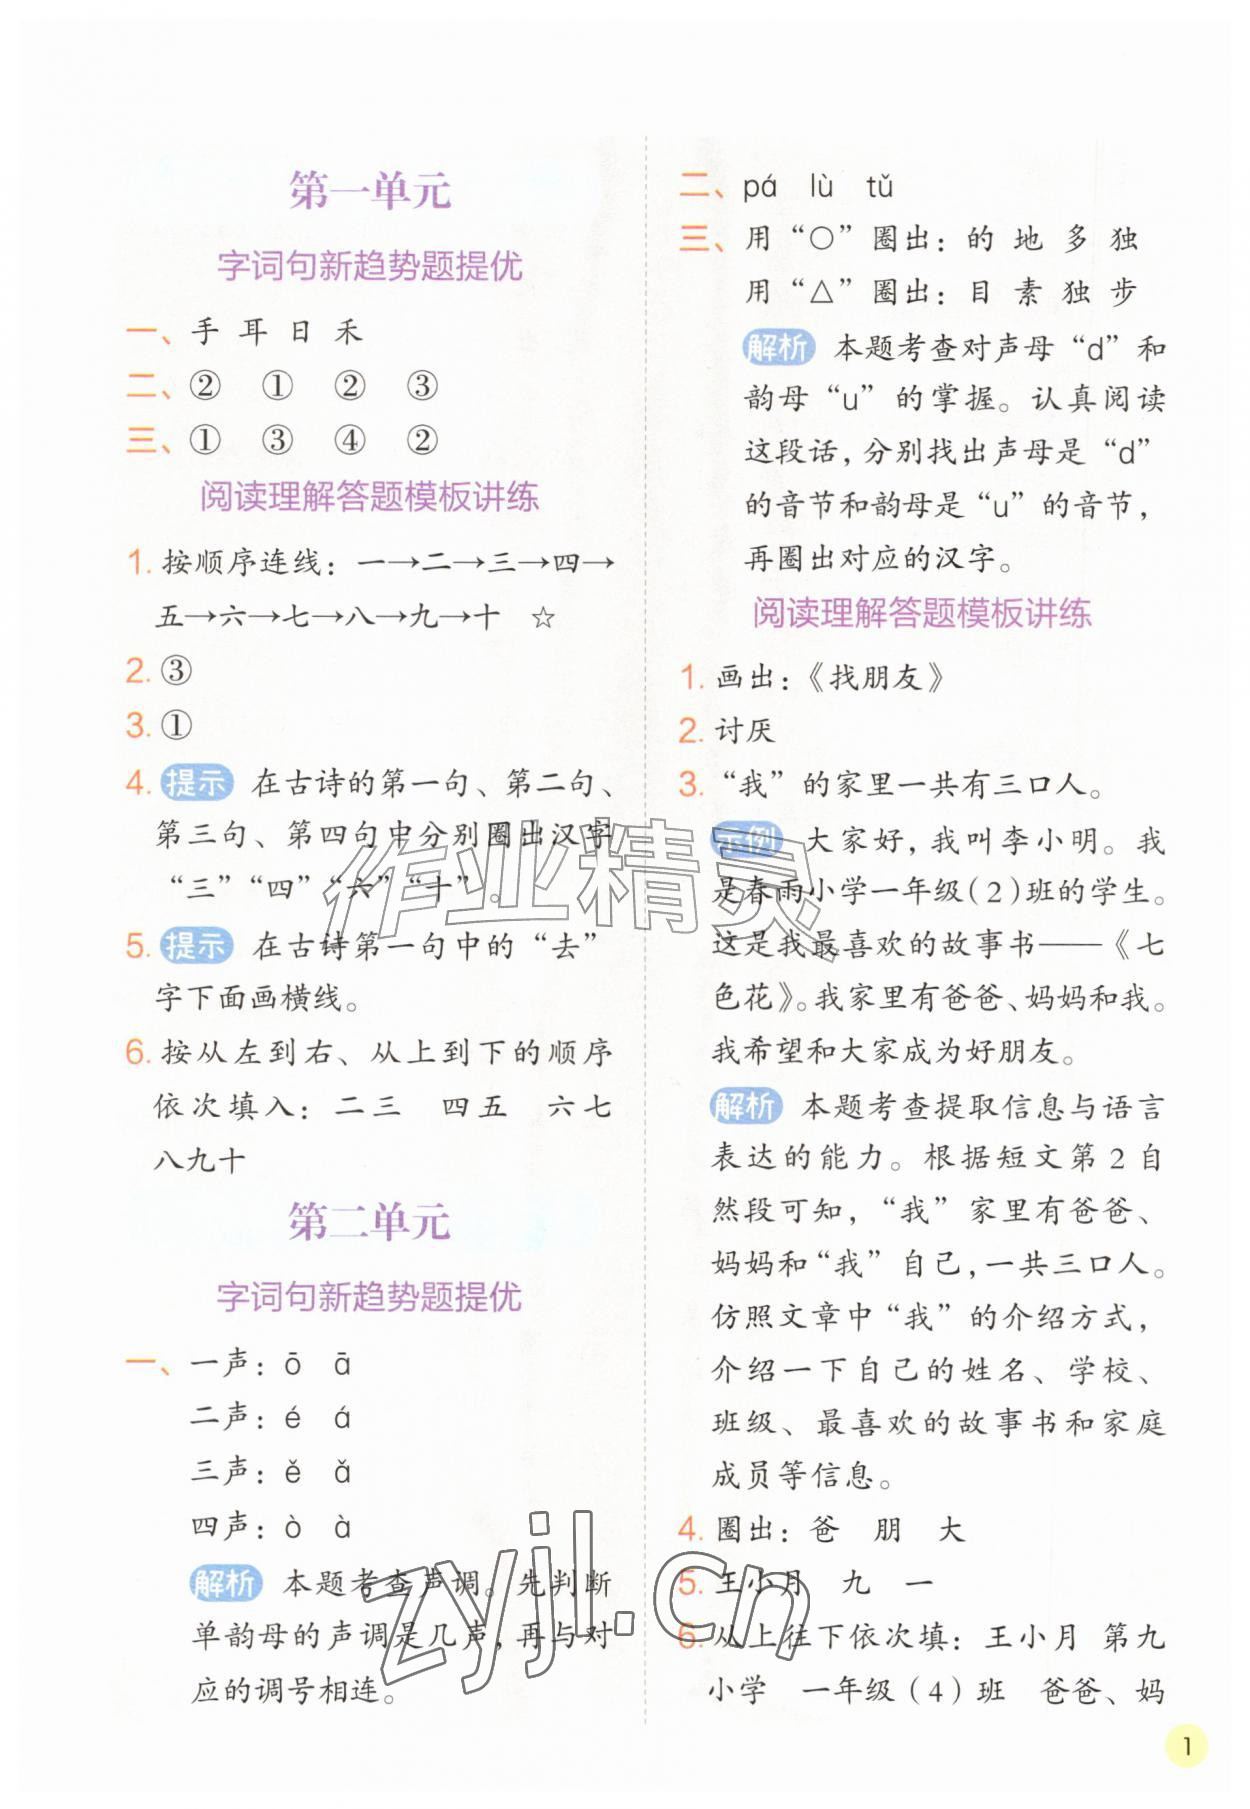 第一单元
字词句新趋势题提优
一、手 耳 日 禾
二、② ① ② ③
三、① ③ ④ ②
阅读理解答题模板讲练
1. 按顺序连线：一→二→三→四→
五→六→七→八→九→十 ☆
2. ③
3. ①
4. 提示 在古诗的第一句、第二句、
第三句、第四句中分别圈出汉字
“三”“四”“六”“十”。
5. 提示 在古诗第一句中的“去”
字下面画横线。
6. 按从左到右、从上到下的顺序
依次填入：二三 四五 六七
八九十
第二单元
字词句新趋势题提优
一、一声：ō ā
二声：é á
三声：ě ǎ
四声：ò à
解析 本题考查声调。先判断
单韵母的声调是几声，再与对
应的调号相连。
二、pá lù tǔ
三、用“○”圈出：的 地 多 独
用“△”圈出：目 素 独 步
解析 本题考查对声母“d”和
韵母“u”的掌握。认真阅读
这段话，分别找出声母是“d”
的音节和韵母是“u”的音节，
再圈出对应的汉字。
阅读理解答题模板讲练
1. 画出：《找朋友》
2. 讨厌
3. “我”的家里一共有三口人。
示例 大家好，我叫李小明。我
是春雨小学一年级（2）班的学生。
这是我最喜欢的故事书——《七
色花》。我家里有爸爸、妈妈和我。
我希望和大家成为好朋友。
解析 本题考查提取信息与语言
表达的能力。根据短文第2自
然段可知，“我”家里有爸爸、
妈妈和“我”自己，一共三口人。
仿照文章中“我”的介绍方式，
介绍一下自己的姓名、学校、
班级、最喜欢的故事书和家庭
成员等信息。
4. 圈出：爸 朋 大
5. 王小月 九 一
6. 从上往下依次填：王小月 第九
小学 一年级（4）班 爸爸、妈
作业精灵
zyjl.cn
1